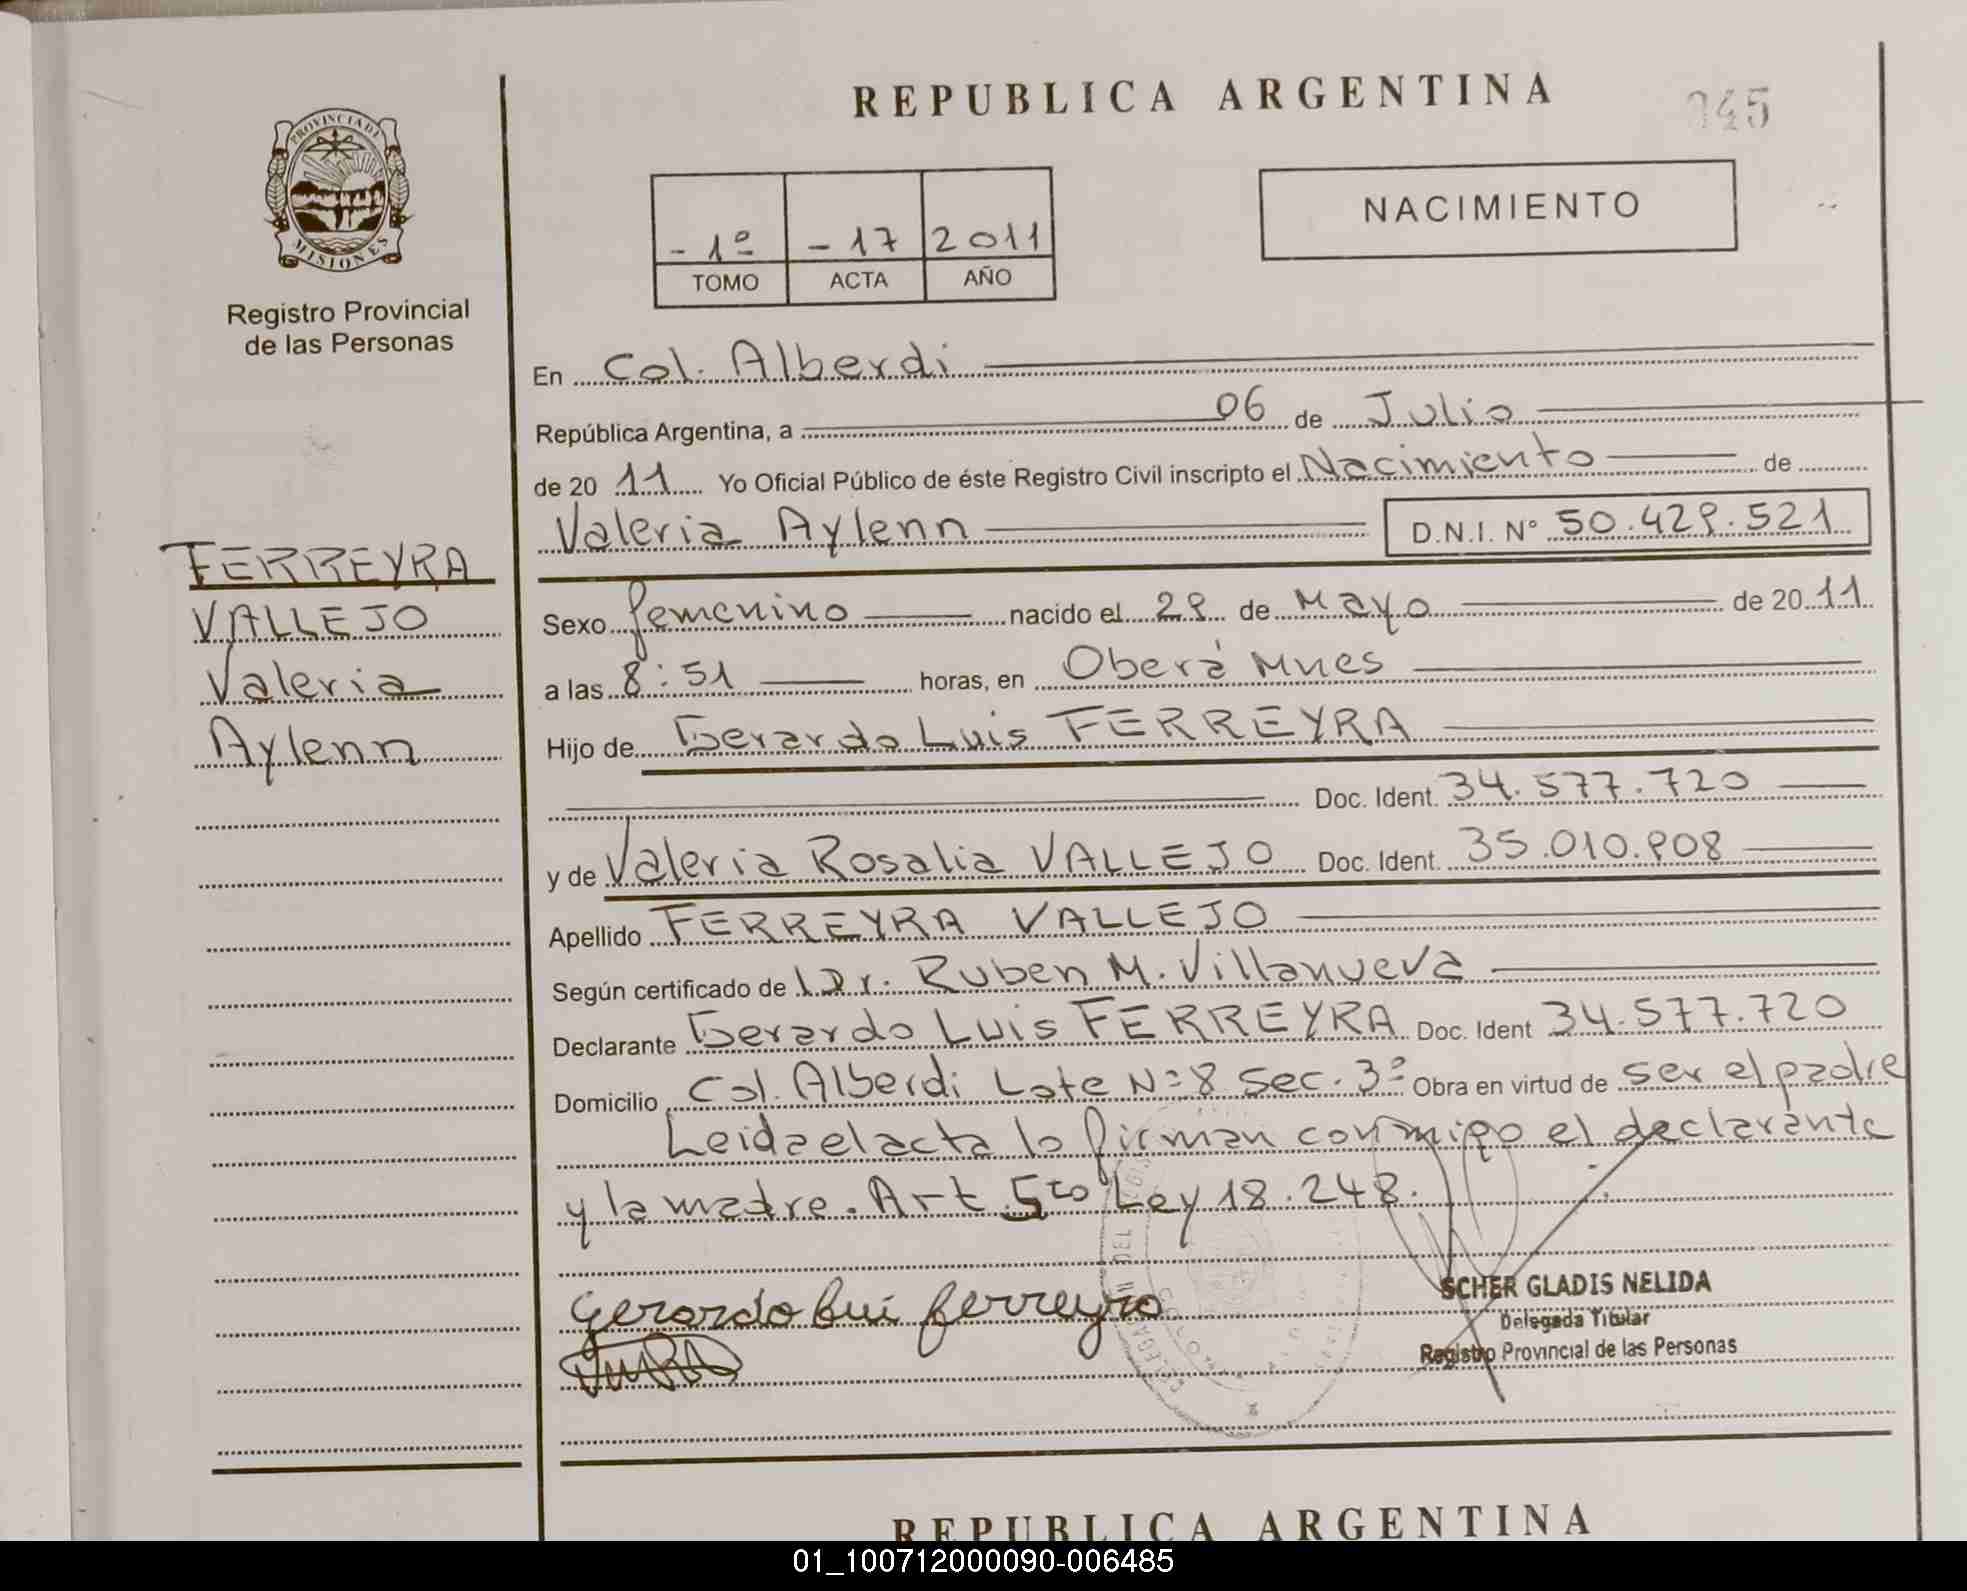 REPUBLICA ARGENTINA
045
PROVINCIA DE
MISIONES
Registro Provincial
de las Personas
- 1º - 17 2011
TOMO ACTA AÑO
NACIMIENTO
En Col. Alberdi
República Argentina, a 06 de Julio
de 20 11 Yo Oficial Público de éste Registro Civil inscripto el Nacimiento de
Valeria Aylenn D.N.I. Nº 50.429.521
FERREYRA
VALLEJO
Valeria
Aylenn
Sexo femenino nacido el 29 de Mayo de 20 11
a las 8:51 horas, en Oberá Mnes
Hijo de Gerardo Luis FERREYRA
Doc. Ident. 34.577.720
y de Valeria Rosalia VALLEJO Doc. Ident. 35.010.908
Apellido FERREYRA VALLEJO
Según certificado de Dr. Ruben M. Villanueva
Declarante Gerardo Luis FERREYRA Doc. Ident 34.577.720
Domicilio Col. Alberdi Lote Nº 8 Sec. 3º Obra en virtud de ser el padre
Leida el acta lo firman conmigo el declarante
y la madre. Art 5to Ley 18.248.
Gerardo Lui ferreyra
SCHER GLADIS NELIDA
Delegada Titular
Registro Provincial de las Personas
REPUBLICA ARGENTINA
01_100712000090-006485